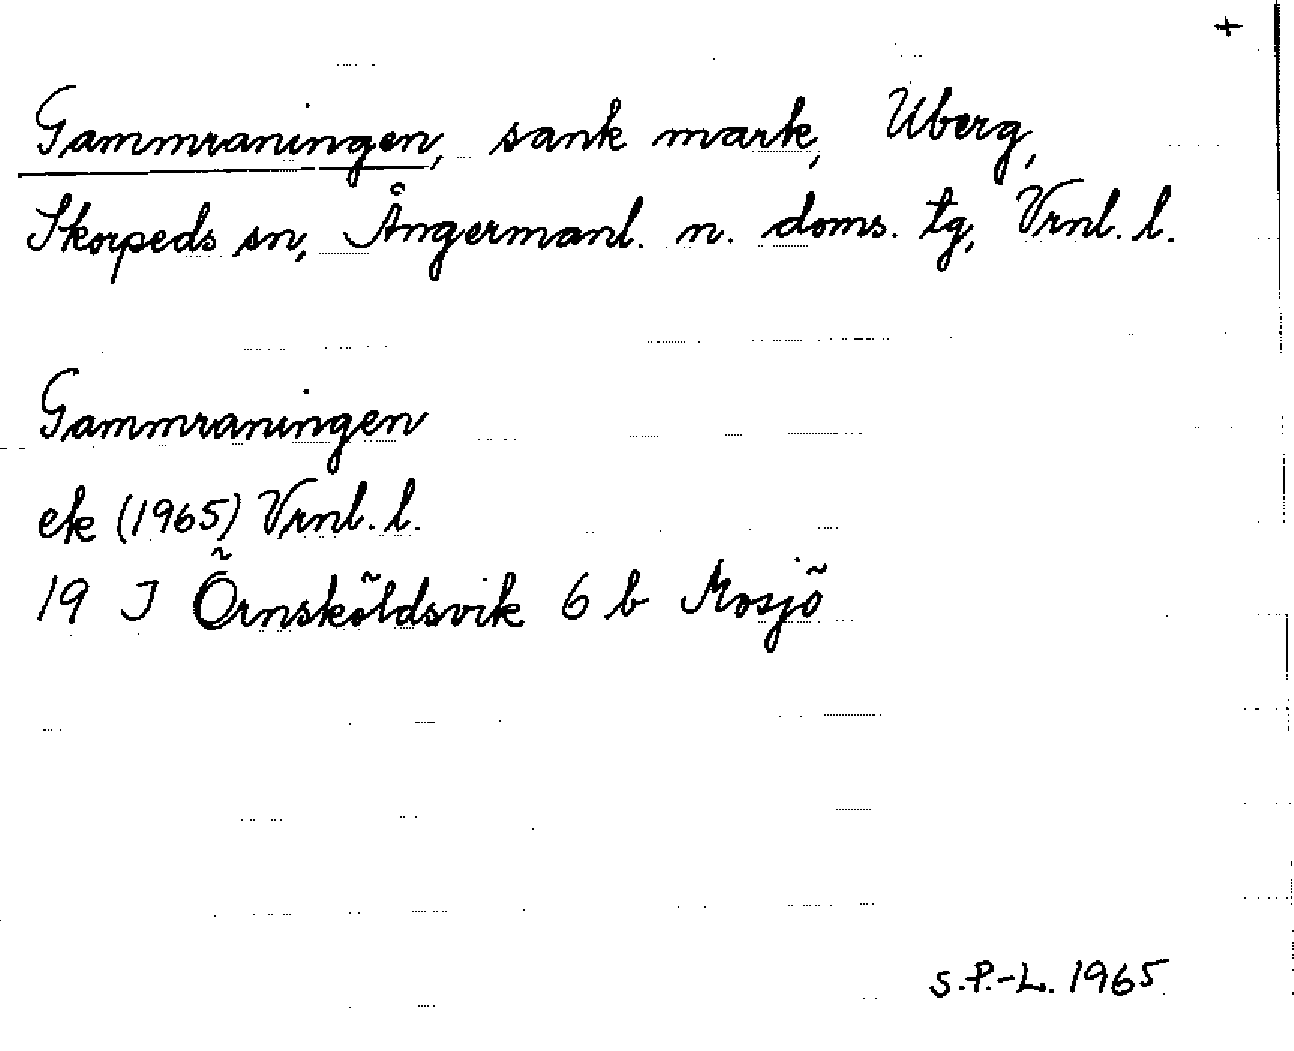 +
Gammraningen, sank mark, Uberg,
Skorpeds sn, Ångermanl. n. doms. tg, Vrnl. l.
Gammraningen
ek (1965) Vrnl. l.
19 J Örnsköldsvik 6 b Mosjö
S.P.-L. 1965